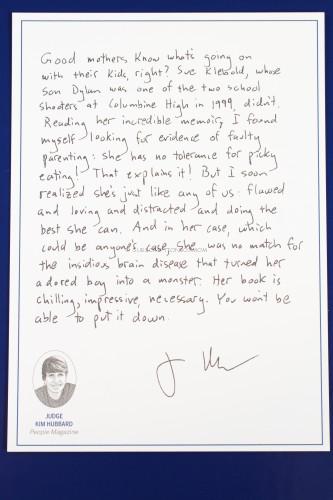 Good mothers know what's going on
with their kids, right? Sue Klebold, whose
son Dylan was one of the two school
shooters at Columbine High in 1999, didn't.
Reading her incredible memoir, I found
myself looking for evidence of faulty
parenting: she has no tolerance for picky
eating! That explains it! But I soon
realized she's just like any of us: flawed
and loving and distracted and doing the
best she can. And in her case, which
could be anyone's case, she was no match for
the insidious brain disease that turned her
adored boy into a monster. Her book is
chilling, impressive, necessary. You won't be
able to put it down.
JUDGE
KIM HUBBARD
People Magazine